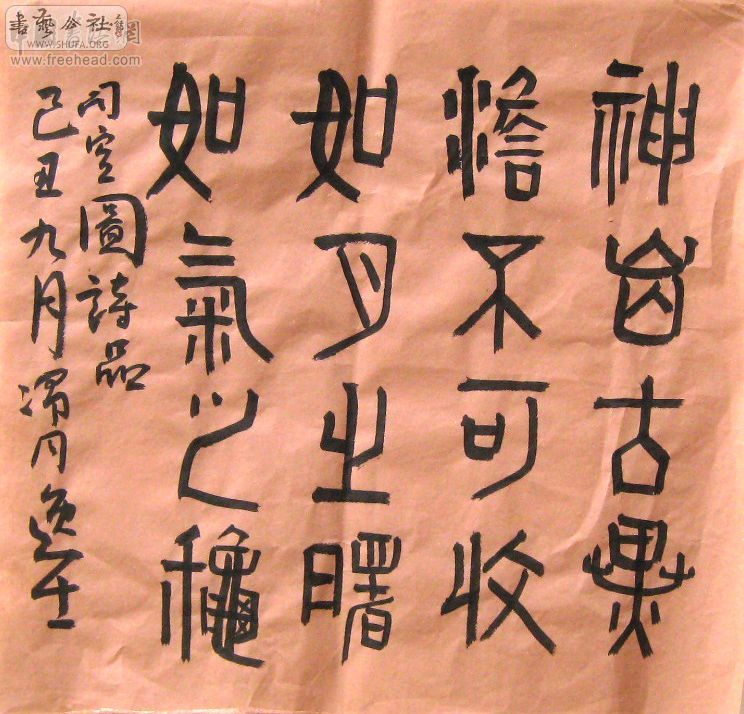 神出古異
澹不可收
如月之曙
如氣之穐
司空圖詩品
己丑九月逸士
WWW.SHUFA.ORG
www.freehead.com